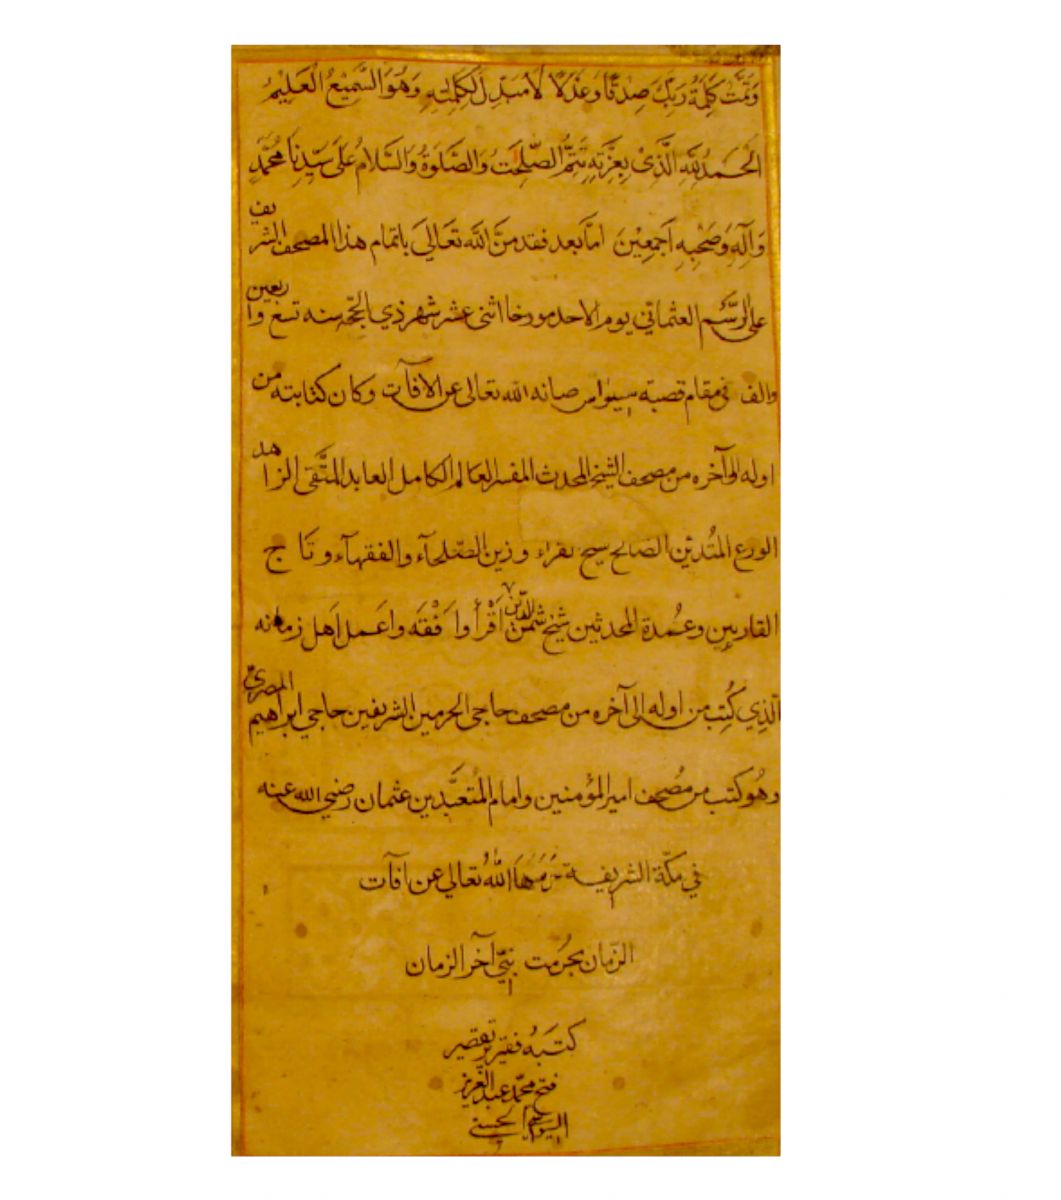 وَتَمَّتْ كَلِمَةُ رَبِّكَ صِدْقًا وَعَدْلًا لَا مُبَدِّلَ لِكَلِمٰتِهِ وَهُوَ السَّمِيْعُ الْعَلِيْمُ
الْحَمْدُ لِلّٰهِ الَّذِيْ بِعِزَّتِهِ تَتِمُّ الصّٰلِحٰتُ وَالصَّلٰوةُ وَالسَّلَامُ عَلٰى سَيِّدِنَا مُحَمَّدٍ
وَاٰلِهٖ وَصَحْبِهِ اَجْمَعِيْنَ امَّا بعد فقد مَنَّ اللّٰه تَعَالٰي باتمام هذا المصحف الشريف
على الرَّسْم العثماني يوم الاحد مورخا اثنى عشر شهر ذي الحجّه سنه تسع واربعين
والف في مقام قصبة سيواس صانه الله تعالى عن الافآت وكان كتابته من
اوله الى آخره من مصحف الشيخ المحدث المفسر العالم الكامل العابد المتَّقي الزاهد
الورع المتُدئين الصالح شيخ بقراء وزين الصّلحآء والفقهآء وتَاج
القاريين وعُمدة المحدثين شيخ شمس الدّين اَقْرأ وافْقَه واعمل اَهل زمانه
الّذي كُتِب من اوله الى آخره من مصحف حاجي الحرمين الشريفين حاجي ابراهيم المصريّ
وهُو كتب من مُصحف امير المؤمنين وامام المُتعبَّدين عثمان رضي الله عنه
في مكّة الشريفة الله تعالي عن افآت
الزّمان بحُرمت نبيّ آخر الزمان
كتبهُ فقير تقصير
فتح محمّد عبد العزيز
الحسني